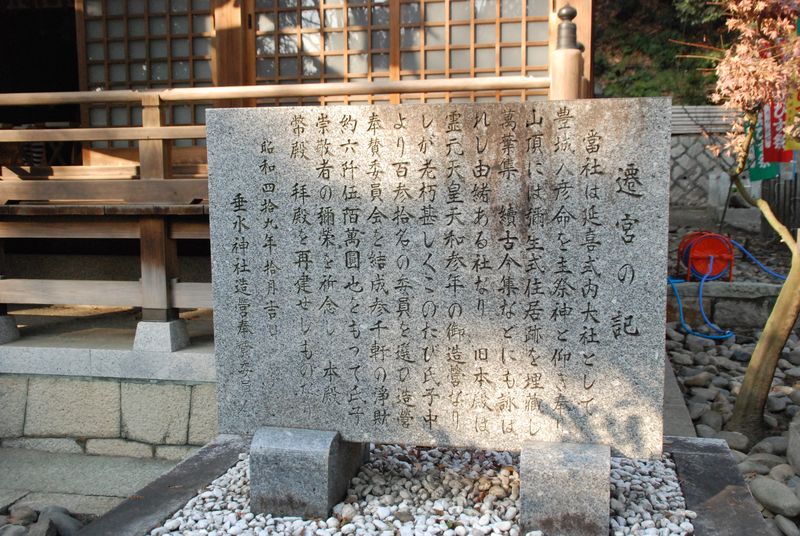 遷宮の記
當社は延喜式内大社として
豊城入彦命を主祭神と仰ぎ奉り
山頂には彌生式住居跡を埋蔵し
萬葉集 續古今集などにも詠は
れし由緒ある社なり 旧本殿は
霊元天皇天和参年の御造営なり
しが老朽甚しくこのたび氏子中
より百参拾名の委員を選び造営
奉賛委員会を結成参千軒の浄財
約六阡伍佰萬圓也をもって氏子
崇敬者の彌榮を祈念し 本殿
幣殿 拝殿を再建せしもの
昭和四拾九年 拾月吉日
垂水神社造営奉賛委員